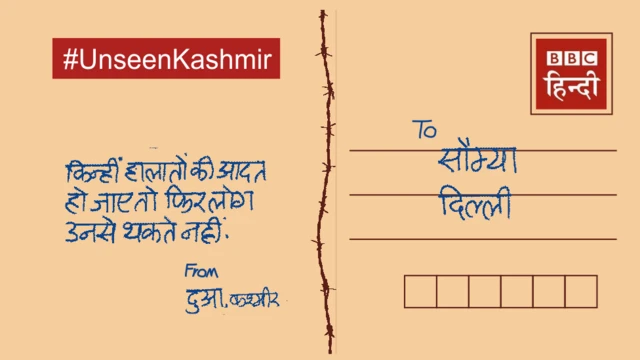 #UnseenKashmir
BBC
हिन्दी
किन्हीं हालातों की आदत
हो जाए तो फिर लोग
उनसे थकते नहीं.
From
दुआ, कश्मीर
To
सौम्या
दिल्ली